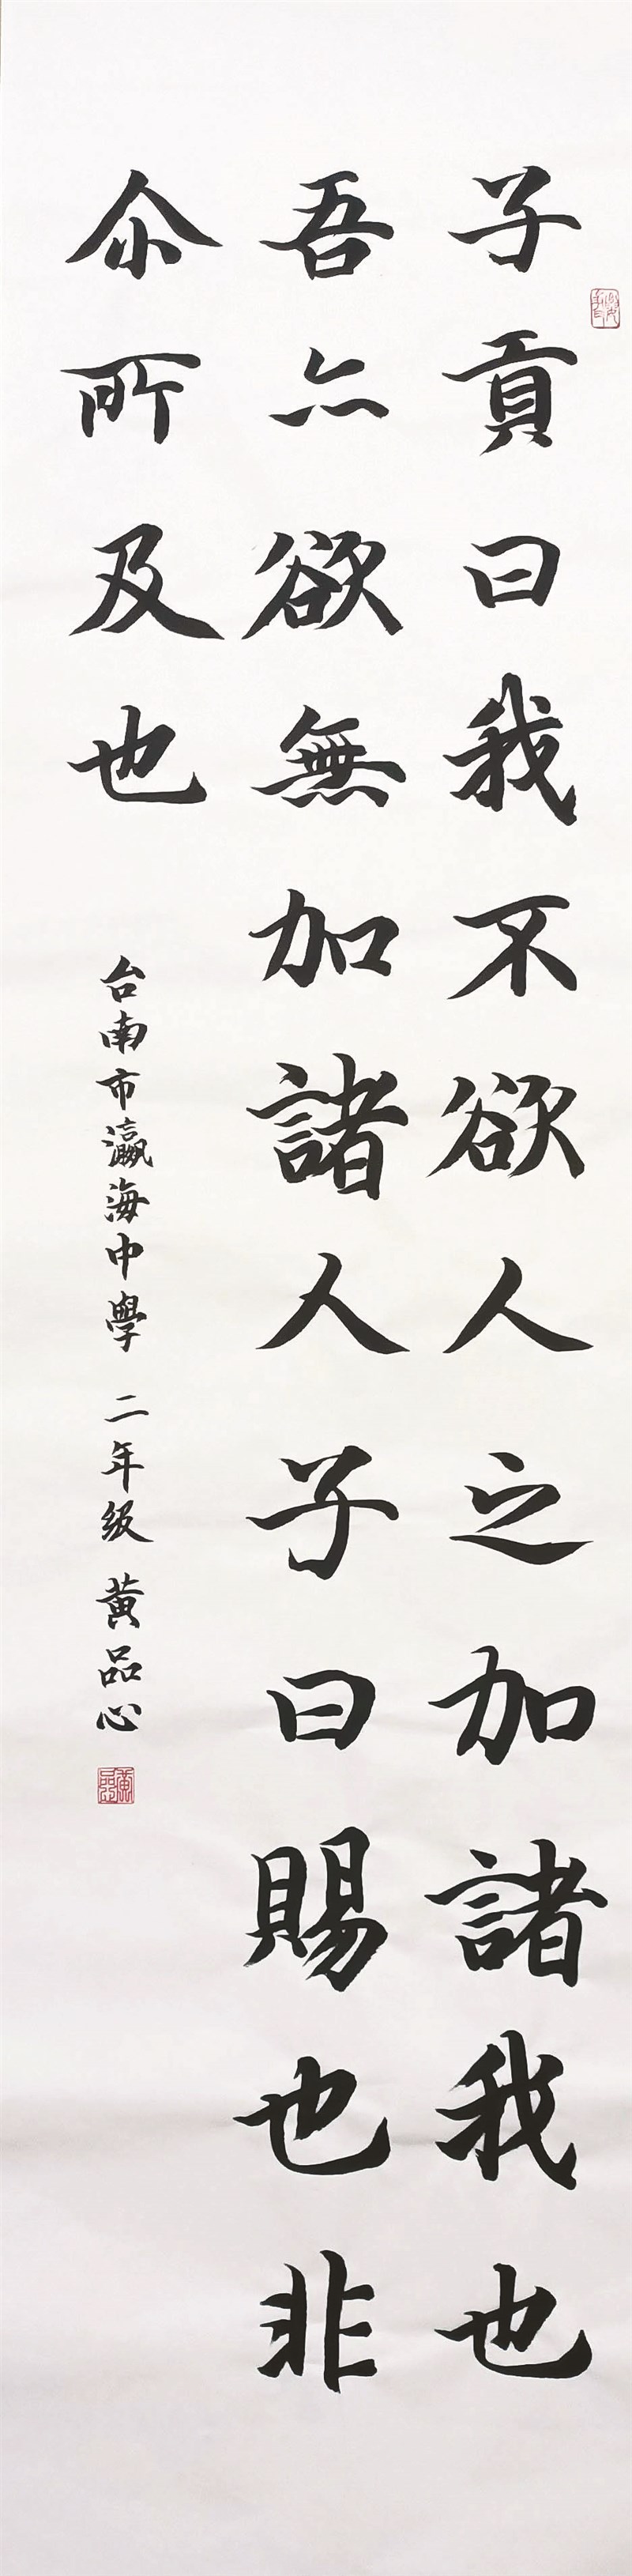 子貢曰我不欲人之加諸我也
吾亦欲無加諸人子曰賜也非
尒所及也
台南市瀛海中學 二年級 黃品心